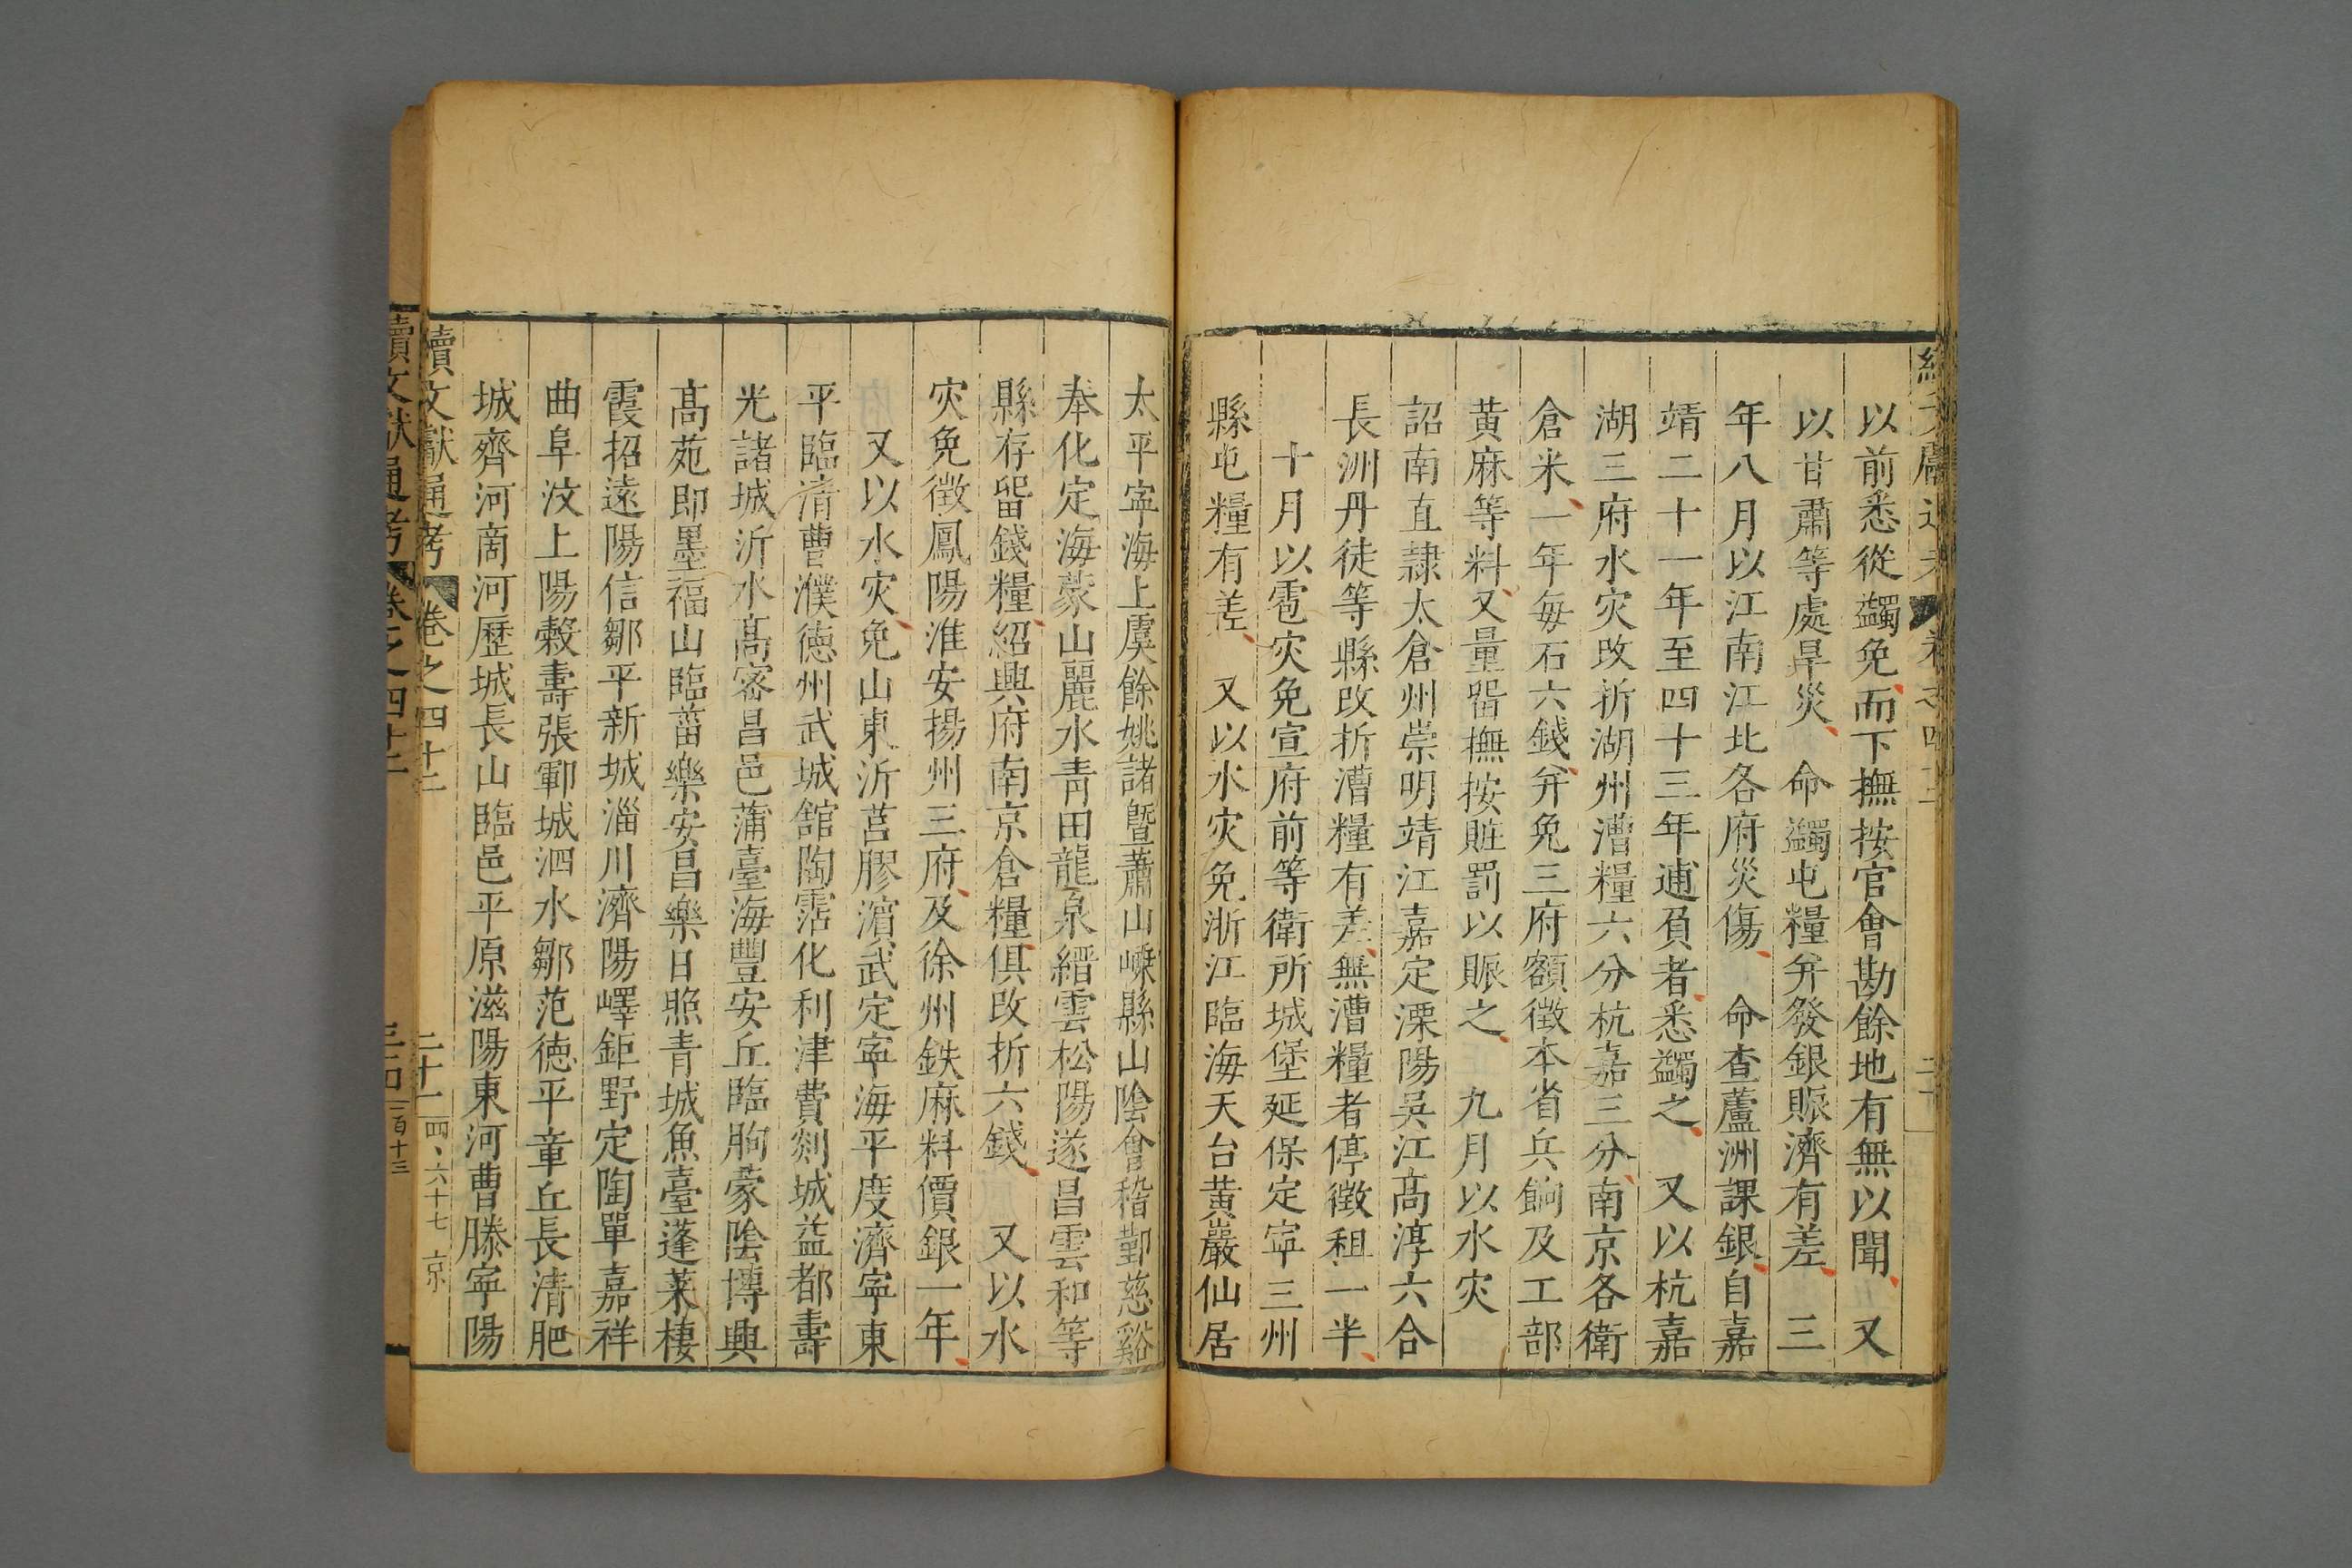 以前悉從蠲免而下撫按官會勘餘地有無以聞 又
以甘肅等處旱災 命蠲屯糧并發銀賑濟有差 三
年八月以江南江北各府災傷 命查蘆洲課銀自嘉
靖二十一年至四十三年逋負者悉蠲之 又以杭嘉
湖三府水灾改折湖州漕糧六分杭嘉三分南京各衛
倉米一年每石六錢并免三府額徵本省兵餉及工部
黄麻等料又量畱撫按贓罰以賑之 九月以水灾
詔南直隸太倉州崇明靖江嘉定溧陽吳江高淳六合
長洲丹徒等縣改折漕糧有差無漕糧者停徵租一半
十月以雹灾免宣府前等衛所城堡延保定寧三州
縣屯糧有差 又以水灾免浙江臨海天台黄巖仙居
太平寧海上虞餘姚諸暨蕭山嵊縣山陰會稽鄞慈谿
奉化定海象山麗水青田龍泉縉雲松陽遂昌雲和等
縣存畱錢糧紹興府南京倉糧俱改折六錢 又以水
灾免徵鳳陽淮安揚州三府及徐州鉄麻料價銀一年
又以水灾免山東沂莒膠濵武定寧海平度濟寧東
平臨清曹濮德州武城舘陶霑化利津費剡城益都壽
光諸城沂水高密昌邑蒲臺海豐安丘臨朐蒙陰博興
高苑即墨福山臨菑樂安昌樂日照青城魚臺蓬萊棲
霞招遠陽信鄒平新城淄川濟陽嶧鉅野定陶單嘉祥
曲阜汶上陽穀壽張鄆城泗水鄒范德平章丘長清肥
城齊河啇河歷城長山臨邑平原滋陽東河曹滕寧陽
續文獻通考 卷之四十二 二十一 四、六十七 京
續文獻通考 卷之四十二